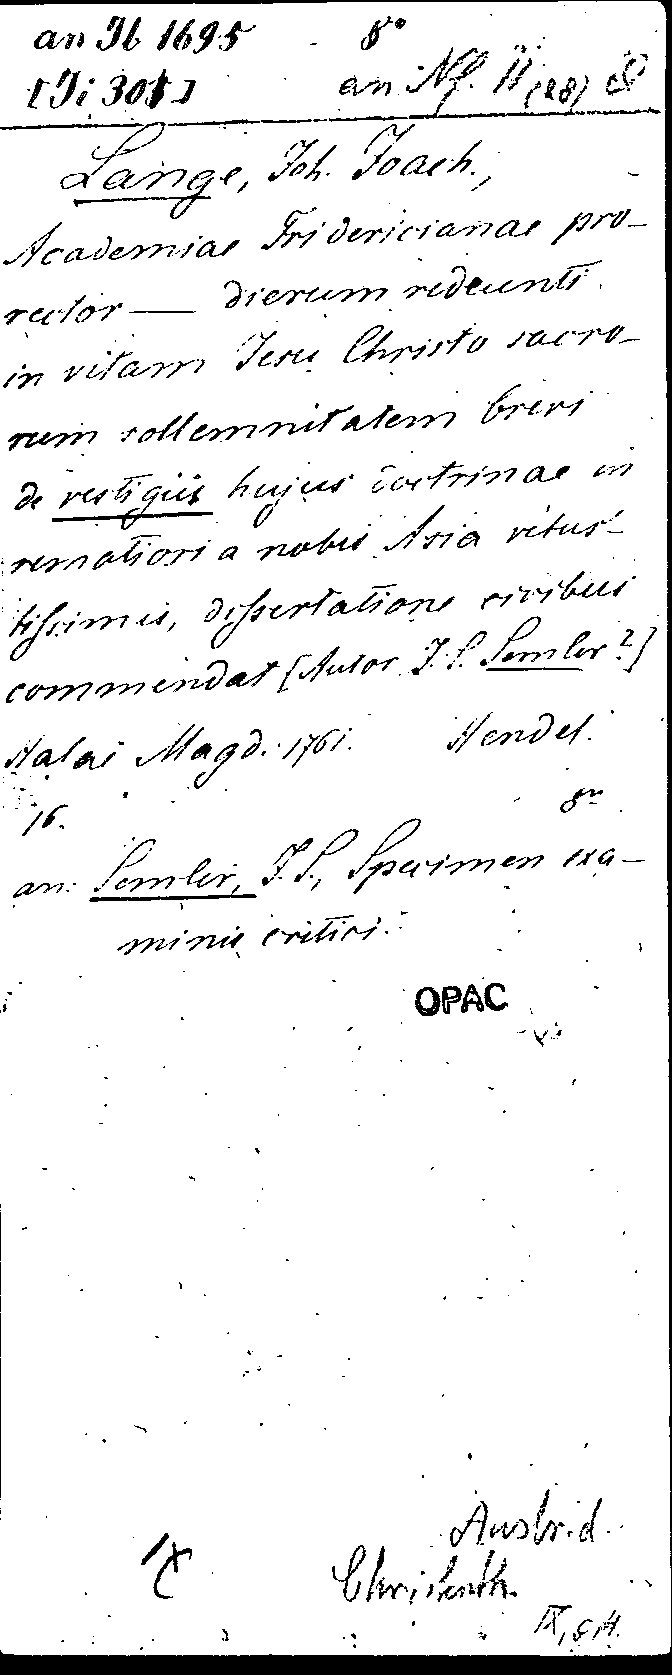 an Ib 1695 8°
[Ji 301] an Nf. II (28) d
Lange, Joh. Joach.,
Academiae Fridericianae pro-
rector — dierum redeunti
in vitam Jesu Christo sacro-
rum sollemnitatem brevi
de vestigiis hujus doctrinae in
remotiori a nobis Asia vetus-
tissimis, dissertatione civibus
commendat [Autor J. S. Semler?]
Halae Magd. 1761. Hendel.
16. 8°
an: Semler, J. S., Specimen exa-
minis critici.
OPAC
Ausbr.d.
Christenth.
IX,